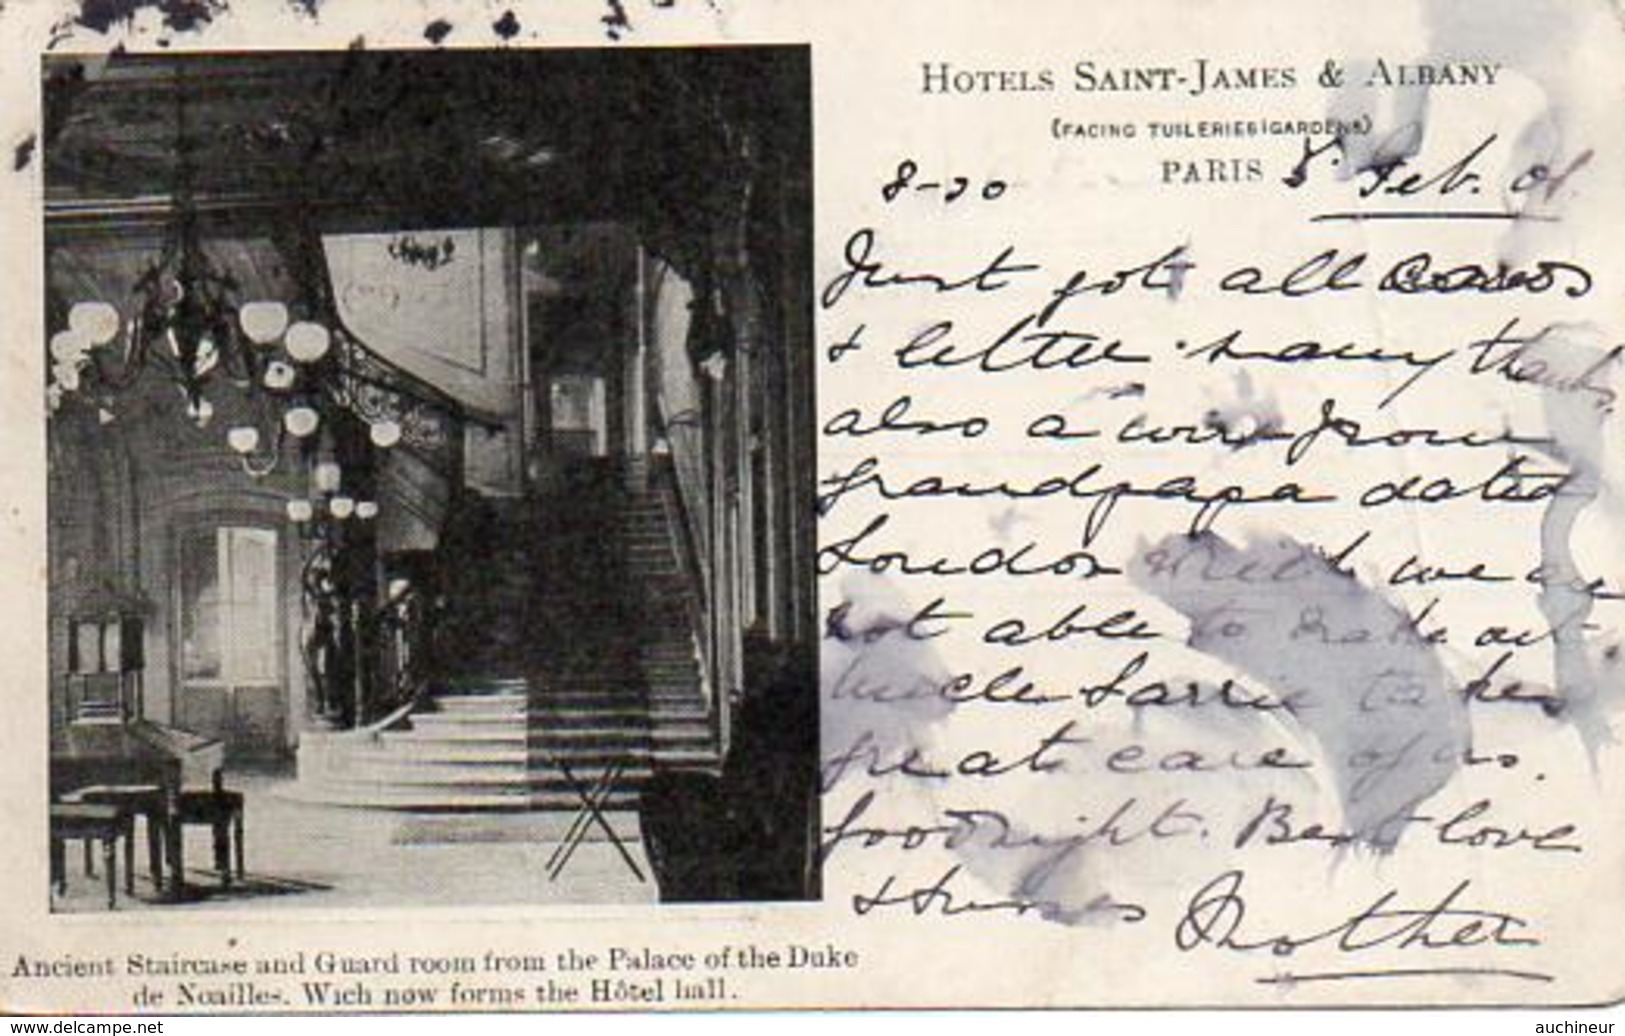 HOTELS SAINT-JAMES & ALBANY
(FACING TUILERIES GARDENS)
PARIS Feb. 01
8-30
Just got all
& letter many thanks
also a wire from
Grandpapa dated
London which we are
not able to make out
Uncle takes
great care of us.
Goodnight. Best love
& kisses Mother
Ancient Staircase and Guard room from the Palace of the Duke
de Noailles. Wich now forms the Hôtel hall.
www.delcampe.net
auchineur